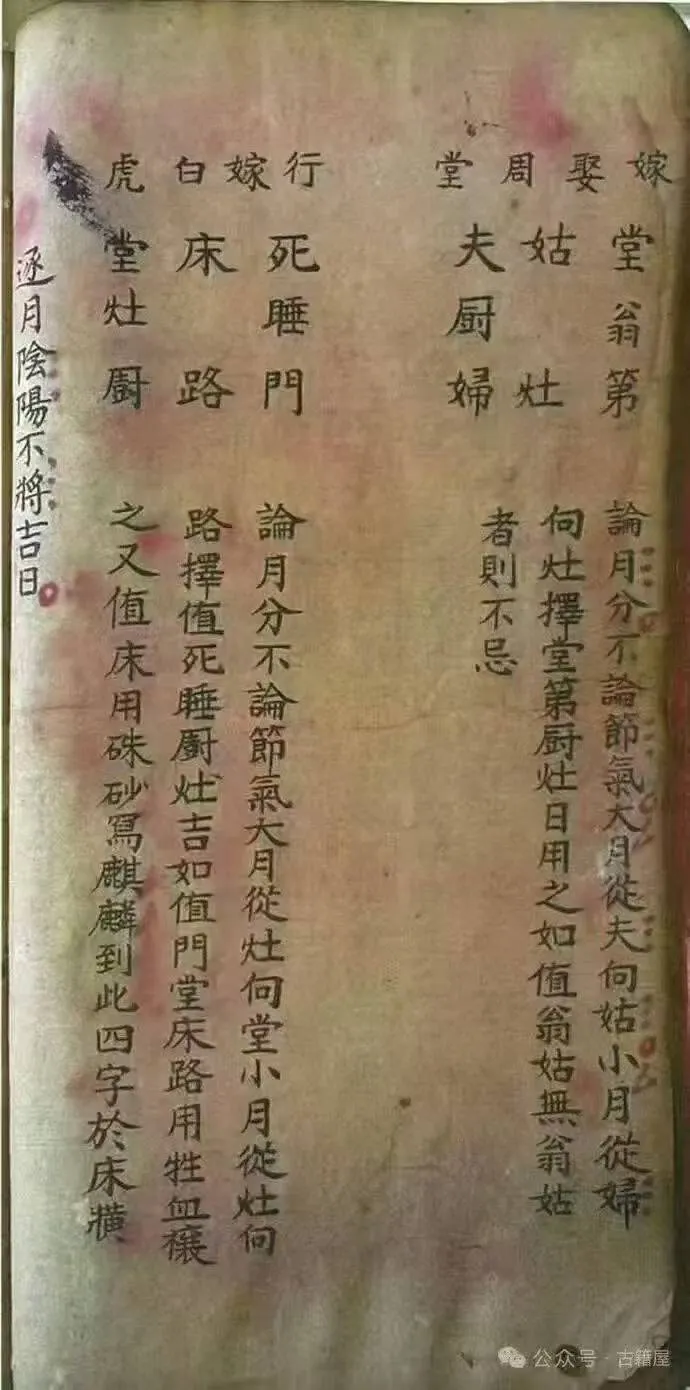 嫁娶周堂
堂翁第
姑灶
夫厨婦
論月分不論節氣大月從夫向姑小月從婦
向灶擇堂第厨灶日用之如值翁姑無翁姑
者則不忌
行嫁白虎
死睡門
床路
堂灶厨
論月分不論節氣大月從灶向堂小月從灶向
路擇值死睡厨灶吉如值門堂床路用牲血穰
之又值床用硃砂冩麒麟到此四字於床橫
逐月陰陽不將吉日
公众号·古籍屋